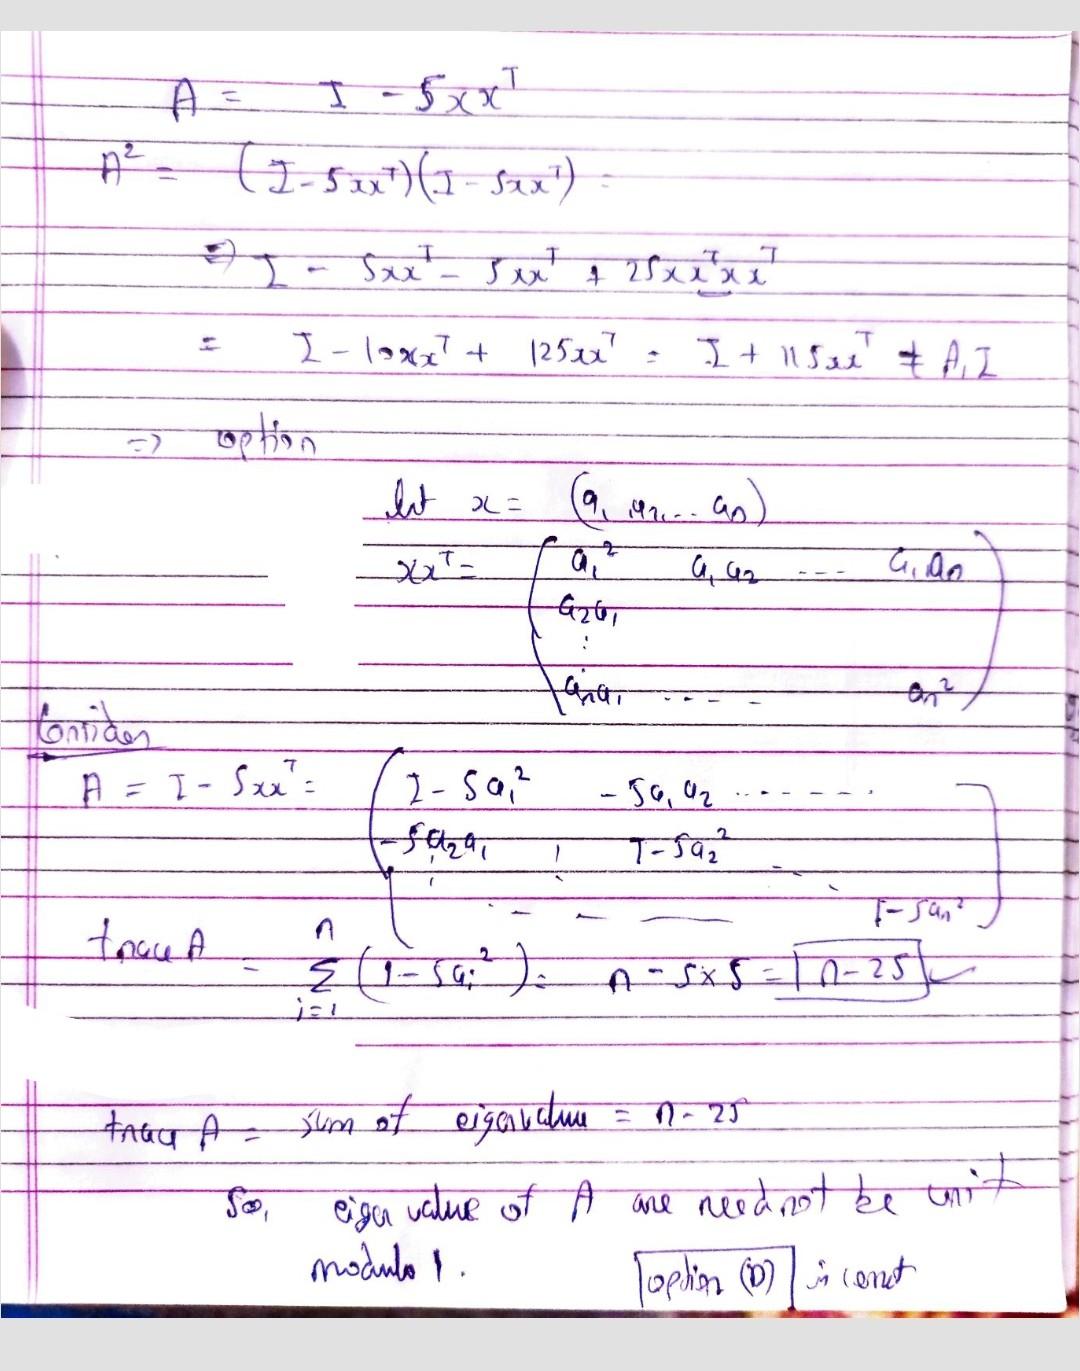 A = I - 5xx^T
A² = (I - 5xx^T)(I - 5xx^T) =
⇒ I - 5xx^T - 5xx^T + 25xx^Txx^T
= I - 10xx^T + 125xx^T = I + 115xx^T ≠ A, I
⇒ option
let x = (a₁, a₂, ... aₙ)
xx^T = ( a₁² a₁a₂ --- a₁aₙ
a₂a₁
⋮
aₙa₁ ---- aₙ² )
Consider
A = I - 5xx^T = ( I - 5a₁² - 5a₁a₂ .......
-5a₂a₁ I - 5a₂²
1 - 5aₙ² )
trace A = n Σ i=1 (1 - 5aᵢ²) = n - 5×5 = n - 25 ✓
trace A = sum of eigenvalue = n - 25
So, eigen value of A are need not be unit
modulo 1. option (D) is correct